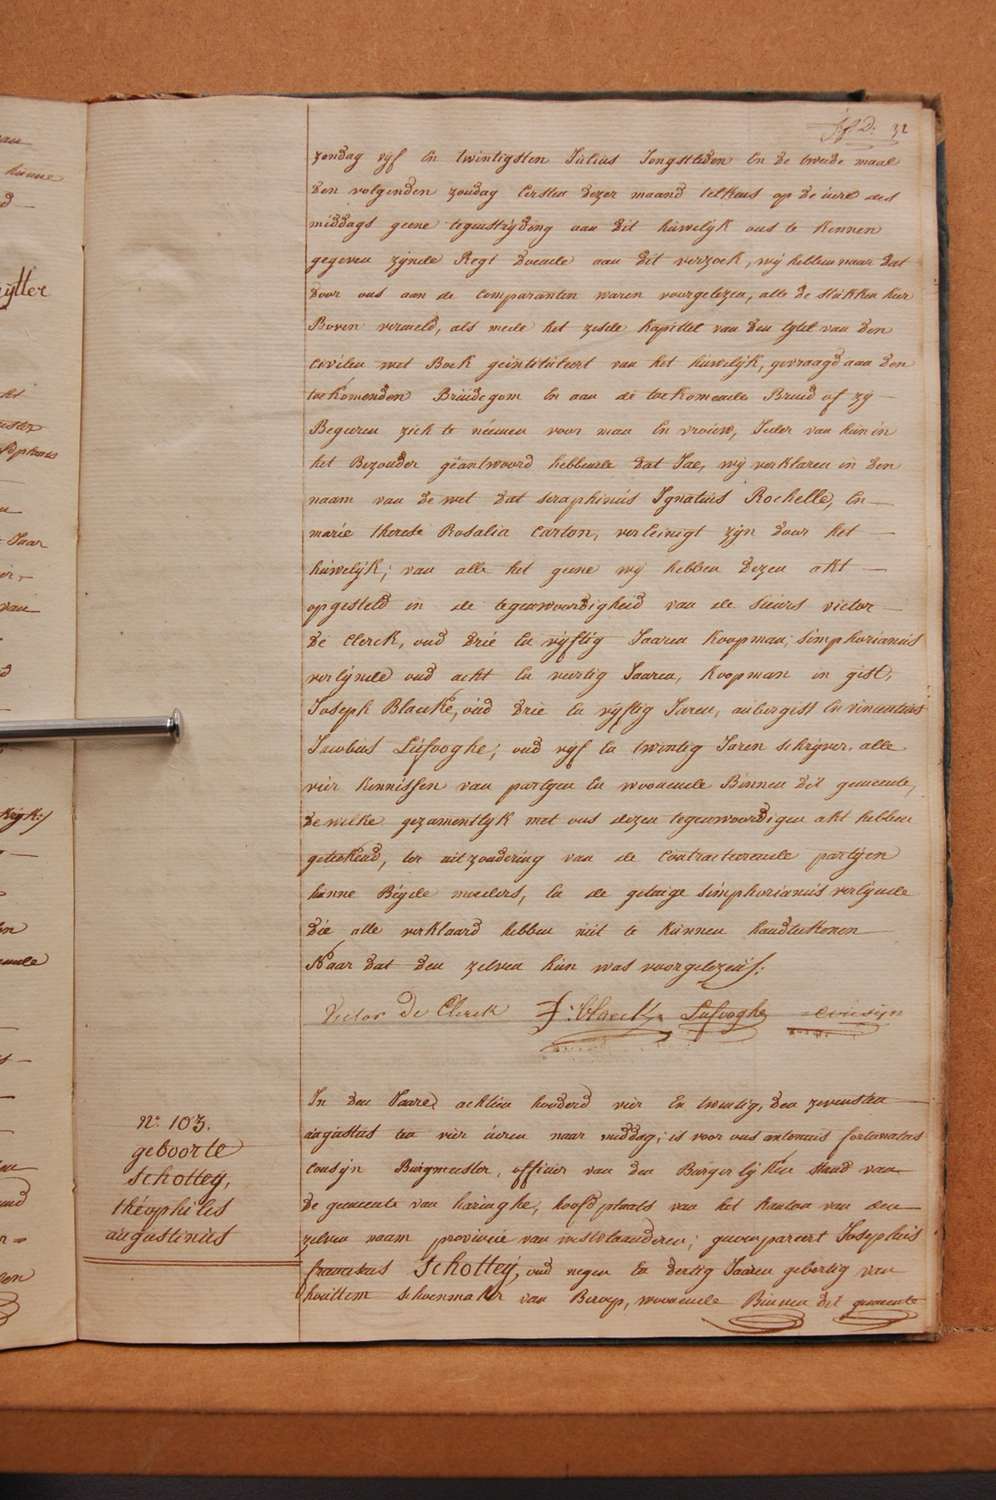 32
zondag vyf en twintigsten Julius Jongstleden en de tweede maal
den volgenden zondag Eersten dezer maand telkens op de uere des
middags geene tegenstryding aan dit huwelyk ons te kennen
gegeven zynde Regt doende aan dit verzoek, wy hebben naar dat
door ons aan de comparanten waren voorgelezen, alle de stukken hier
Boven vermeld, als mede het zesde kapittel van den tytel van den
civilen wet Boek geintituleert van het huwelyk, gevraagd aan den
toekomenden Bruidegom en aan de toekomende Bruid of zy
Begeren zich te neemen voor man en vrouw, Jeder van hun in
het Bezonder geantwoord hebbende dat Jae, wy verklaren in den
naam van de wet dat seraphinus Ignatius Rochelle, en
marie therese Rosalia Carton, vereeinigt zyn door het
huwelyk; van alle het geene wy hebben dezen akt
opgesteld in de tegenwoordigheid van de sieurs victor
de Clerck, oud drie en vyftig Jaaren koopman, simphorianus
verlynde oud acht en veertig Jaaren, koopman in gist,
Joseph Blaeke, oud drie en vyftig Jaren, aubergist en vincentius
Jacobus Lufooghe; oud vyf en twintig Jaren schryver. alle
vier kennissen van partyen en woonende Binnen dit gemeente,
dewelke gezamentlyk met ons dezen tegenwoordigen akt hebben
getekend, ter uitzondering van de contracteerende partyen
hunne Beyde moeders, en de getuige simphorianus verlynde
die alle verklaard hebben niet te kunnen handtekenen
Naar dat den zelven hun was voorgelezen.
Victor De Clerck J: Blaeck Lufooghe Cousyn
N.º 103.
geboorte
schottey,
théophilus
augustinus
In den Jaare achtien honderd vier En twintig, den zevensten
augustus ten vier ueren naar middag; is voor ons antonius fortunatus
cousyn Burgmeester, officier van den Burgerlyken stand van
de gemeente van haringhe, hoofdplaats van het kanton van den
zelven naam provincie van westvlaanderen; gecompareert Josephus
franciscus Schottey, oud negen En dertig Jaaren geboortig van
houttem schoenmaker van Beroep, woonende Binnen dit gemeente